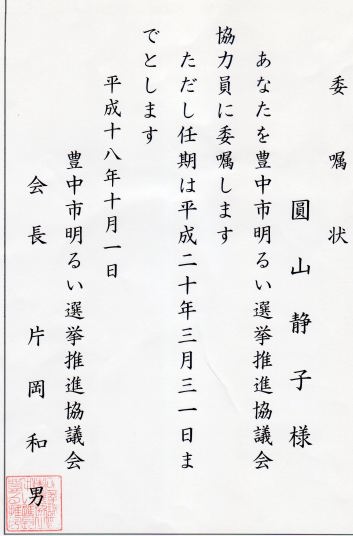 委嘱状
圓山静子様
あなたを豊中市明るい選挙推進協議会
協力員に委嘱します
ただし任期は平成二十年三月三一日ま
でとします
平成十八年十月一日
豊中市明るい選挙推進協議会
会長 片岡和男